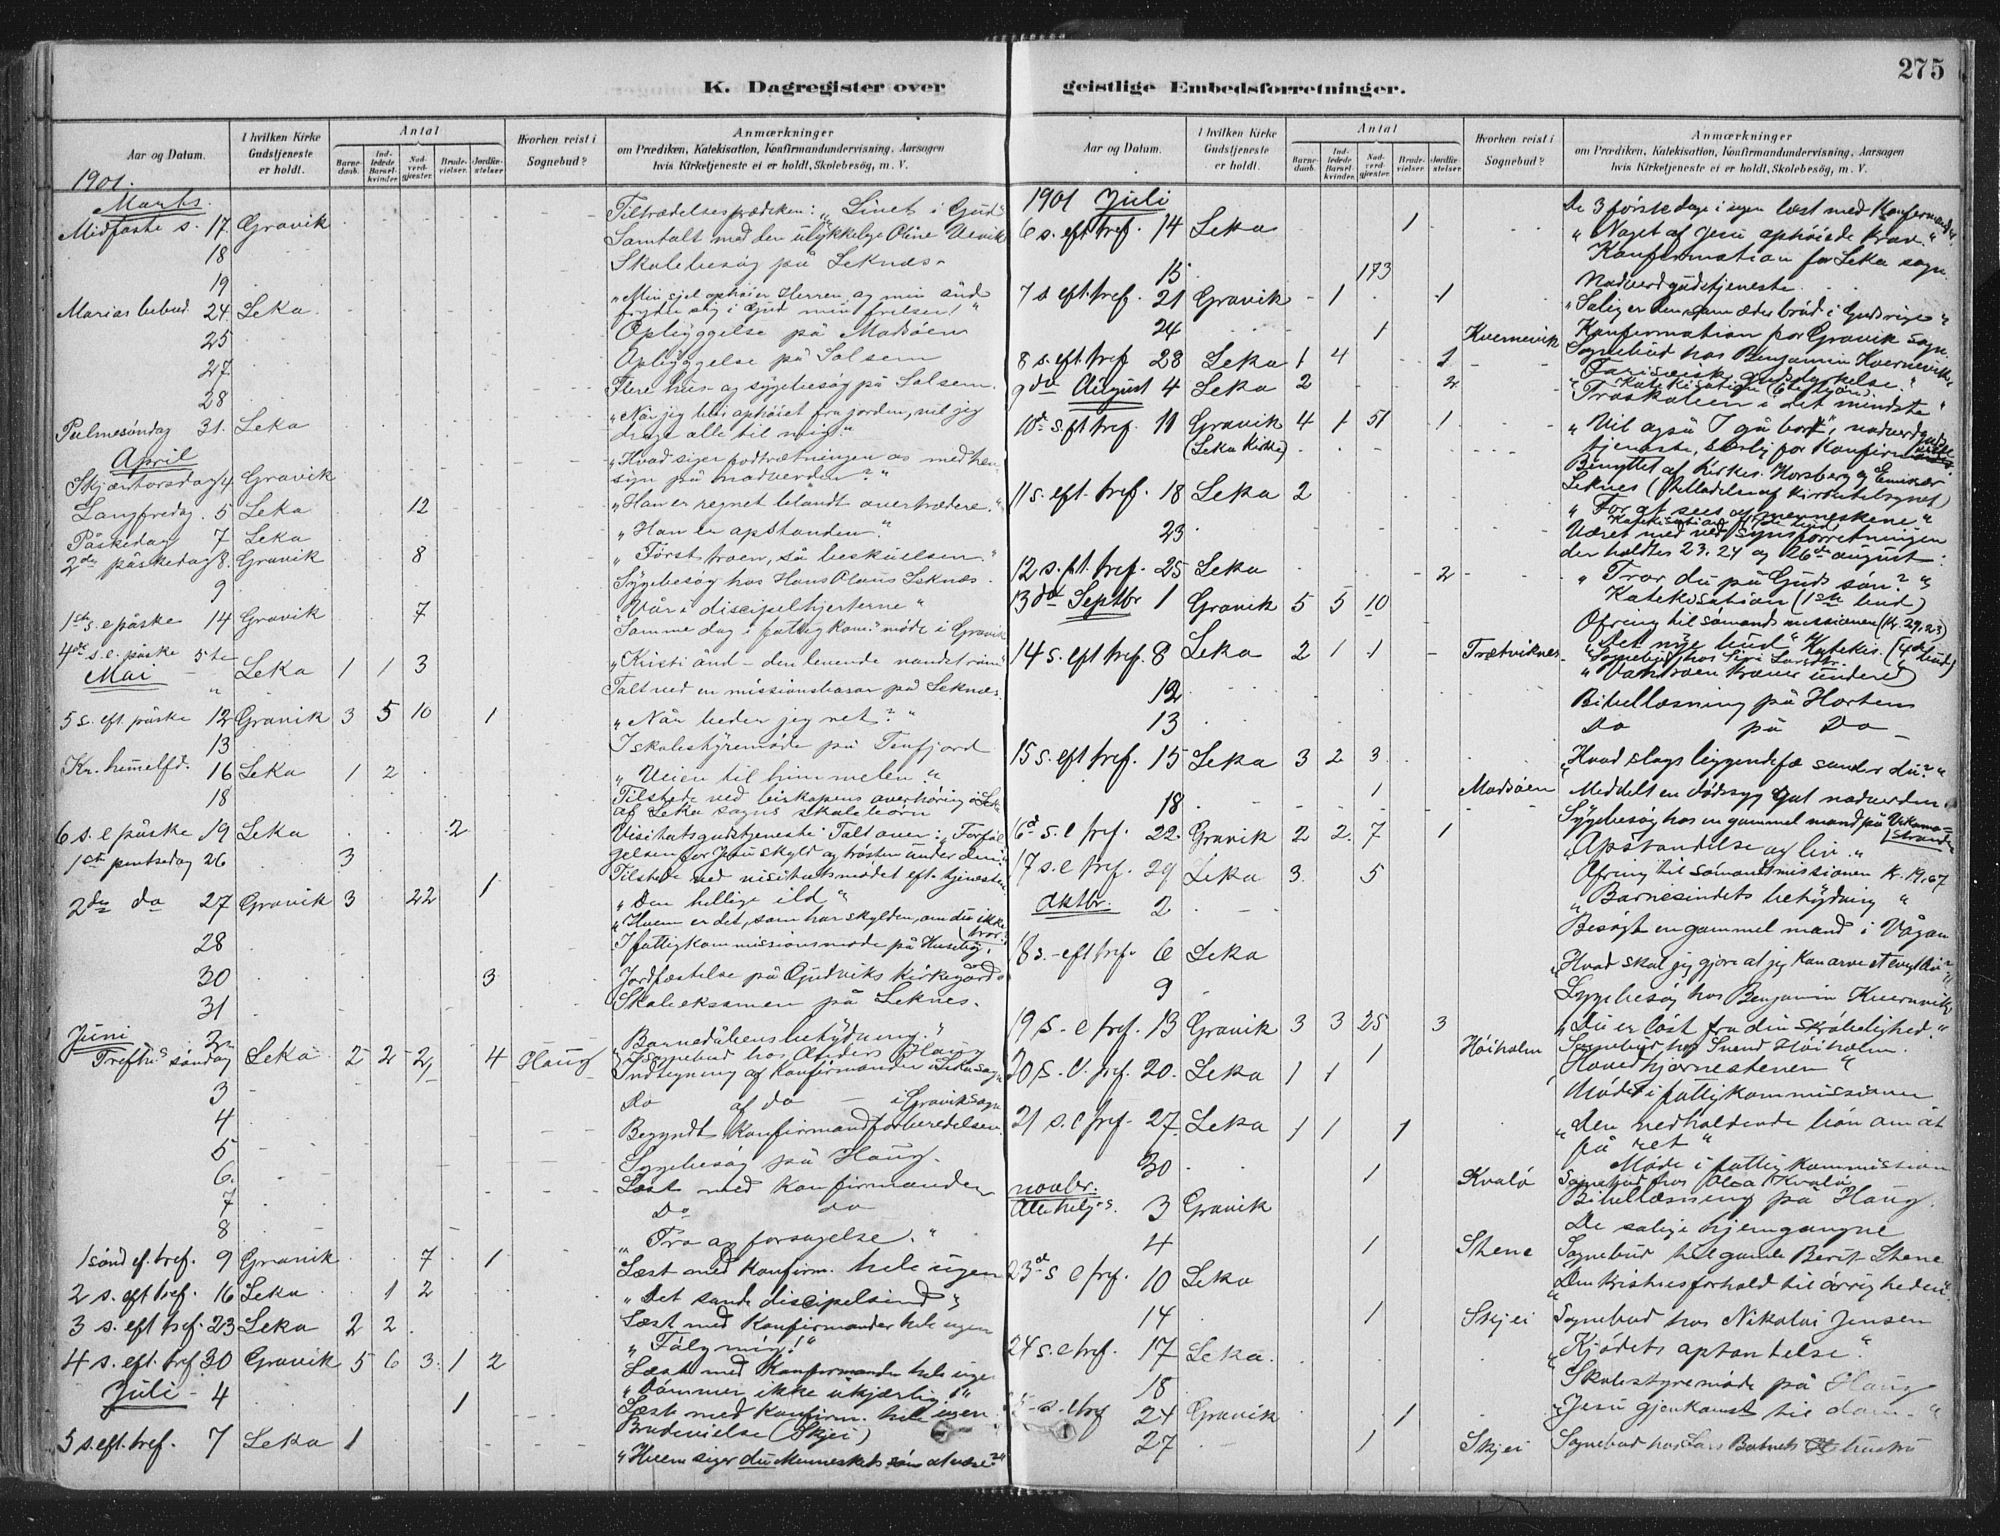 275
K. Dagregister over geistlige Embedsforretninger.
Aar og Datum.
I hvilken Kirke Gudstjeneste er holdt.
Antal
Barnedaab.
Indledede Barselkvinder.
Nadverdgjæster.
Brudevielser.
Jordfæstelser.
Hvorhen reist i Sognebud?
Anmærkninger
om Prædiken, Katekisation, Konfirmandundervisning, Aarsagen
hvis Kirketjeneste ei er holdt, Skolebesøg, m. V.
1901.
Marts.
Midfaste s. 17. Gravik Tiltrædelsesprædiken: "Livet i Gud"
18 Samtalt med den ulykkelige Oline
19 Skolebesøg på Leknes.
Marias bebud. 24. Leka "Min sjel ophøier Herren og min ånd
fryder sig i Gud min frelser!"
25 Opbyggelse på Madsøen
27. Opbyggelse på Solsem
28 Flere hus- og sygebesøg på Solsem.
Palmesøndag 31. Leka "Når jeg blir ophøiet fra jorden, vil jeg
drage alle til mig."
April
Skjærtorsdag 4 Gravik "Hvad siger fodtvætningen os med hensyn på nadverden?"
Langfredag. 5 Leka 12 "Han er regnet blandt overtrædere."
Påskedag 7 Leka "Han er opstanden."
2den påskedag 8. Gravik 8 "Først troen, så beskuelsen."
9 Sygebesøg hos Hans Olaus Leknes.
1ste s. e påske 14 Gravik 7 "Vår i discipelhjerterne"
Samme dag i fattigkom. møde i Gravik
4de s. e. påske
Mai 5te Leka 1 1 3 "Kristi ånd - den levende vandstrøm"
" Talt ved en missionsbasar på Leknes.
5 s. eft. påske 12 Gravik 3 5 10 1 "Når beder jeg ret?"
13 I skolestyremøde på Tenfjord
Kr. himmelfd. 16 Leka 1 2 "Veien til himmelen."
18 Tilstede ved biskopens overhøring i Leka
af Leka sogns skolebørn
6 s. e påske 19 Leka 2 Visitatsgudstjeneste. Talt over: "Forfølgelsen for Jesu skyld og trøsten under den"
1ste pintsedag 26 3 Tilstede ved visitatsmødet eft. tjenesten
2den do 27 Gravik 3 22 1 "Den hellige ild"
"Hvem er det, som har skylden, om du ikke tror?"
28 I fattigkommissionsmøde på Husebø,
30 3 Jordfæstelse på Gutviks kirkegård
31 Skoleeksamen på Leknes.
Juni
Trefth. søndag 2 Leka 2 2 2 4 Haug Barnedåbens betydning."
Sognebud hos Anders Haug
Indtegning af Konfirmander i Leka sogn
3 Do af do - i Gravik sogn
4 Begyndt Konfirmandforberedelsen.
5 Sygebesøg på Haug.
6. Læst med Konfirmander
7 Do do
8
1 sønd ef. tref. 9 Gravik 7 1 "Tro og forsagelse."
Læst med Konfirm. hele ugen
2 s. eft tref. 16 Leka 1 2 "Det sande discipelsind"
3 s. eft tref. 23 Leka 2 2 Læst med Konfirmander hele ugen
"Følg mig!"
4 s. eft. tref 30 Gravik 5 6 3. 1 2 Læst med Konfirmander hele ugen
"Dømmer ikke ukjærlig!"
Juli - 4 1 Læst med Konfirm. hele ugen.
Brudevielse (Skjei)
5 s. eft. tref. 7 Leka 1 "Hvem siger du Menneskets søn at være?"
Aar og Datum.
I hvilken Kirke Gudstjeneste er holdt.
Antal
Barnedaab.
Indledede Barselkvinder.
Nadverdgjæster.
Brudevielser.
Jordfæstelser.
Hvorhen reist i Sognebud?
Anmærkninger
om Prædiken, Katekisation, Konfirmandundervisning, Aarsagen
hvis Kirketjeneste ei er holdt, Skolebesøg, m. V.
1901 Juli De 3 første dage i ugen læst med Konfirmander
6 s. eft tref. 14 Leka 1 "Noget af Jesu ophøiede krav."
Konfirmation for Leka sogn.
15 173 Nadverdgudstjeneste
7 s. eft. tref. 21 Gravik - 1 1 "Salig er den som æder brød i Guds rige"
Konfirmation for Gravik sogn.
24 1 Kvernevik Sognebud hos Benjamin Kvernevik
8 s. eft. tref 28 Leka 1 4 1 "Farisæisk gudsdyrkelse."
9de August 4 Leka 2 2 "Troskaben i det mindste"
10de s. eft tref. 11 Gravik 4 1 51 1 "Vil også I gå bort", nadverdgudstjeneste, særlig for Konfirm
(Leka Kirke) Benyttet af Kirkes. Horsberg og Emissær
Leknes (Tilladelse af Kirketilsynet)
11 s. eft. tref. 18 Leka 2 "For at sees af menneskene."
23 Været med ved synsforretningen
der holdtes 23. 24 og 26de august.
12 s. ft. tref. 25 Leka 2 "Tror du på Guds søn?"
13de Septbr 1 Gravik 5 5 10 Katekisation (1ste bud)
Ofring til sømandsmissionen (Kr. 29,23)
14 s. eft tref. 8 Leka 2 1 1 Trætviknes "Det nye bud" Katekis. (4de bud)
12 Bibellæsning på Hortens
13 Do på Do -
15 s. eft tref. 15 Leka 3 2 3 "Hvad slags liggendefæ sander du?"
18 1 Madsøen Meddelt en dødssyg gut nadverden
Sygebesøg hos en gammel mand på
16de s. e tref. 22. Gravik 2 2. 7 1 "Opstandelse og liv."
17 s. e tref. 29 Leka 3. 5 Ofring til sømandsmissionen K. 19,67
"Barnesindets betydning"
Oktbr. 2 Besøgt en gammel mand i Vågan
18 s. - eft tref. 6 Leka "Hvad skal jeg gjøre at jeg kan arve et evigt liv?"
9 Sygebesøg hos Benjamin Kvernvik
19 s. e tref. 13 Gravik 3 3 25 3 "Du er løst fra din skrøbelighed."
1 Høiholm Sognebud hos Svend Høiholm.
20 s. e. tref. 20. Leka 1 1 "Hovedhjørnestenen"
Møde i fattigkommissionen
21 s. e tref. 27. Leka 1 1 1 "Den vedholdende bøn om at
få ret"
30 1 Kvalø Møde i fattigkommission
Sognebud hos Olsa Kvalø
Bibellæsning på Haug.
Novbr.
Allehelgs. 3 Gravik De salige hjemgangne
4 1 Stene Sognebud hel gamle Berit Stene
23de s e tref. 10 Leka Den kristnes forhold til øvrigheden.
14 1 Skjei Sognebud hos Nikolai Jensen
24 s. e tref. 17 Leka. "Kjødets opstandelse."
18 Skolestyremøde på Haug
24 Gravik 1 "Jesu gjenkomst til dom."
27 1 Skjei Sognebud hos Lars hustru